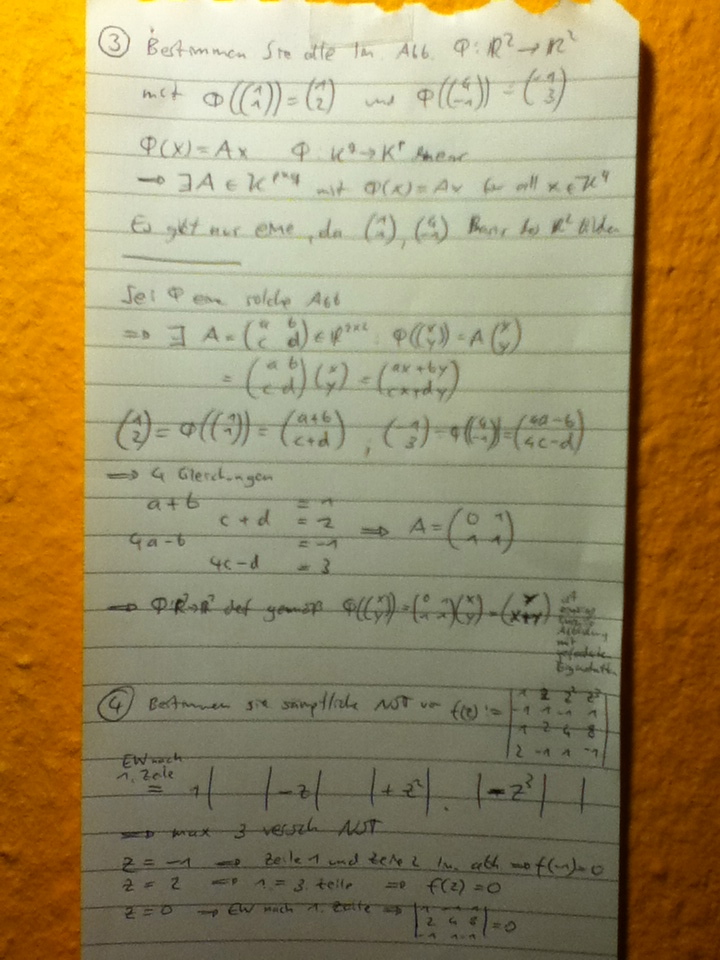 ③ Bestimmen Sie alle lin. Abb. Φ: ℝ² → ℝ²
mit Φ((1 1)) = (1 2) und Φ((4 -1)) = (-1 3)
Φ(x) = Ax Φ: K^q → K^p linear
→ ∃ A ∈ K^{p×q} mit Φ(x) = Ax für all x ∈ K^q
Es gibt nur eine, da (1 1), (4 -1) Basis des ℝ² bilden
Sei Φ eine solche Abb
⇒ ∃ A = (a b / c d) ∈ ℝ^{2×2} : Φ((x y)) = A (x y)
= (a b / c d) (x y) = (ax+by / cx+dy)
(1 2) = Φ((1 1)) = (a+b / c+d) , (-1 3) = Φ((4 -1)) = (4a-b / 4c-d)
⇒ 4 Gleichungen
a + b = 1
c + d = 2 ⇒ A = (0 1 / 1 1)
4a - b = -1
4c - d = 3
⇒ Φ: ℝ² → ℝ² def gemäß Φ((x y)) = (0 1 / 1 1) (x y) = (y / x+y) ist
einzige
lineare
Abbildung
mit
geforderten
Eigenschaften
④ Bestimmen sie sämptliche NST von f(z) := |1 z z² z³ / -1 1 -1 1 / 1 2 4 8 / 2 -1 1 -1|
EW nach
1. Zeile
= 1 | | - z | | + z² | . | - z³ | |
⇒ max 3 versch NST
z = -1 ⇒ Zeile 1 und Zeile 2 lin. abh ⇒ f(-1) = 0
z = 2 ⇒ 1. = 3. Zeile ⇒ f(2) = 0
z = 0 → EW nach 1. Zeile ⇒ |1 -1 1 / 2 4 8 / -1 1 -1| = 0